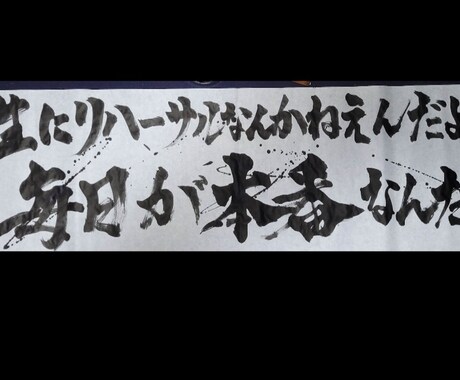 生にリハーサルなんかねえんだよ
毎日が本番なんだ